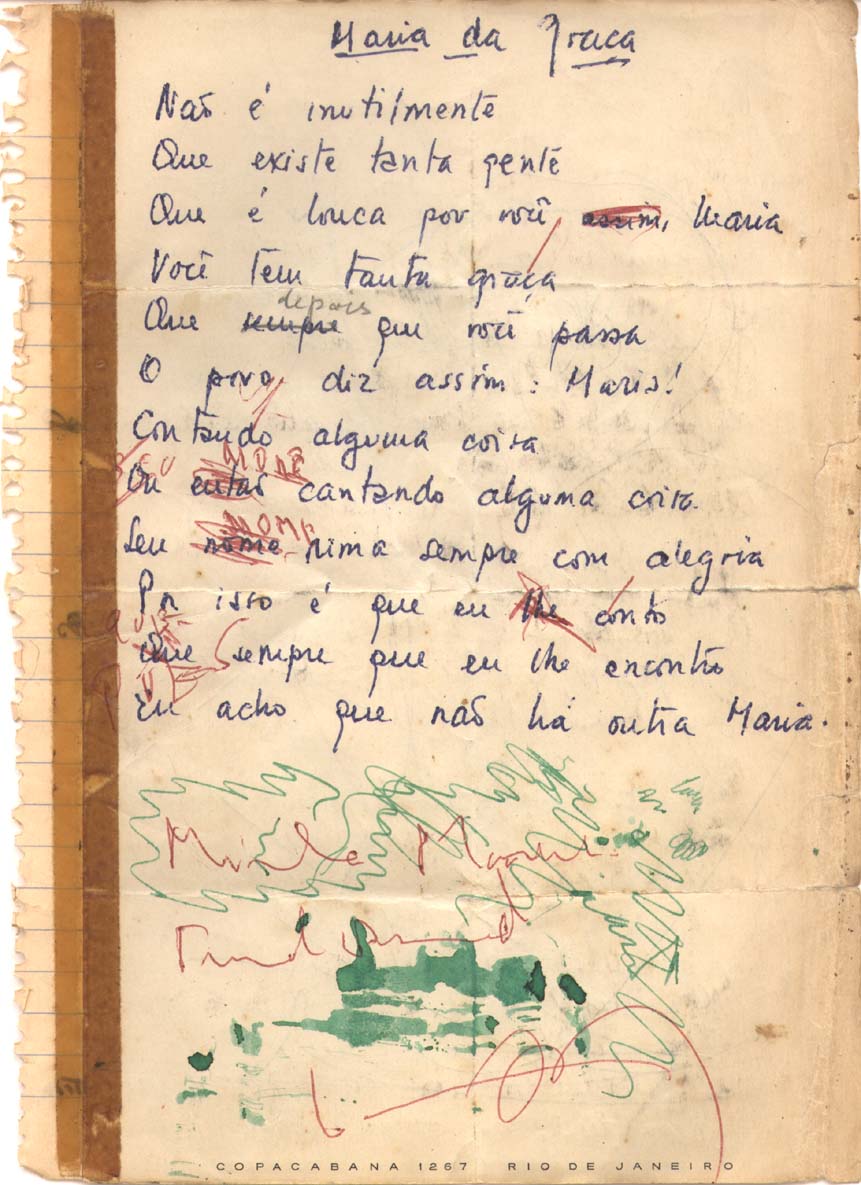 Maria da Graca
Não é inutilmente
Que existe tanta gente
Que é louca por você assim, Maria
Você tem tanta graça
depais
Que sempre que você passa
O povo diz assim: Maria!
Contando alguma coisa
Ou então cantando alguma coisa
Seu nome rima sempre com alegria
Por isso é que eu lhe conto
Que sempre que eu lhe encontro
Eu acho que não há outra Maria.
COPACABANA 1267 RIO DE JANEIRO